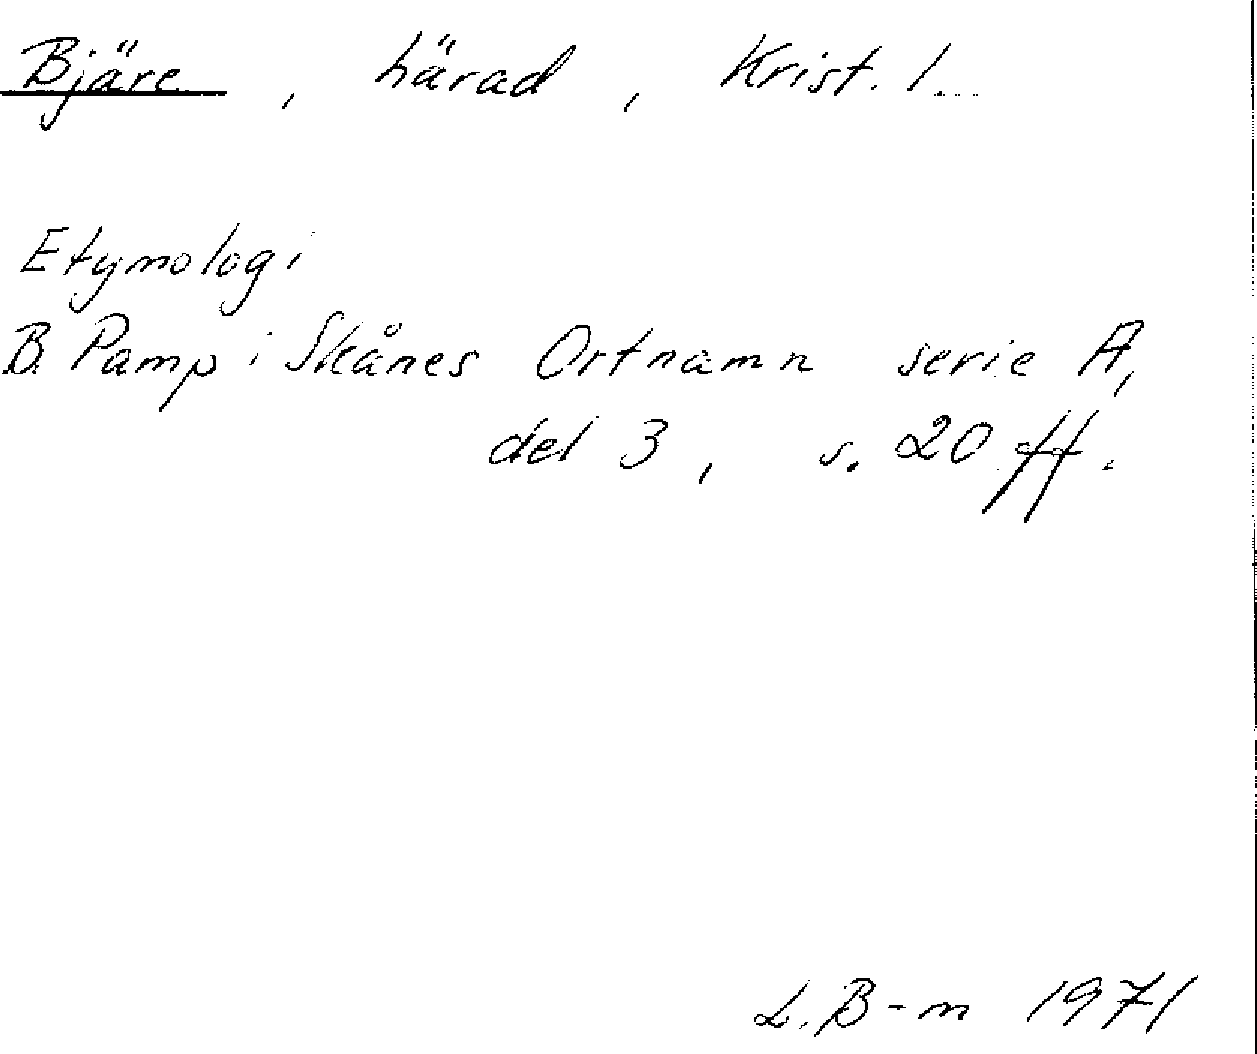 Bjäre, härad, Krist. l.
Etymologi
B. Pamp i Skånes Ortnamn serie A,
del 3, s. 20 ff.
L. B-m 1971